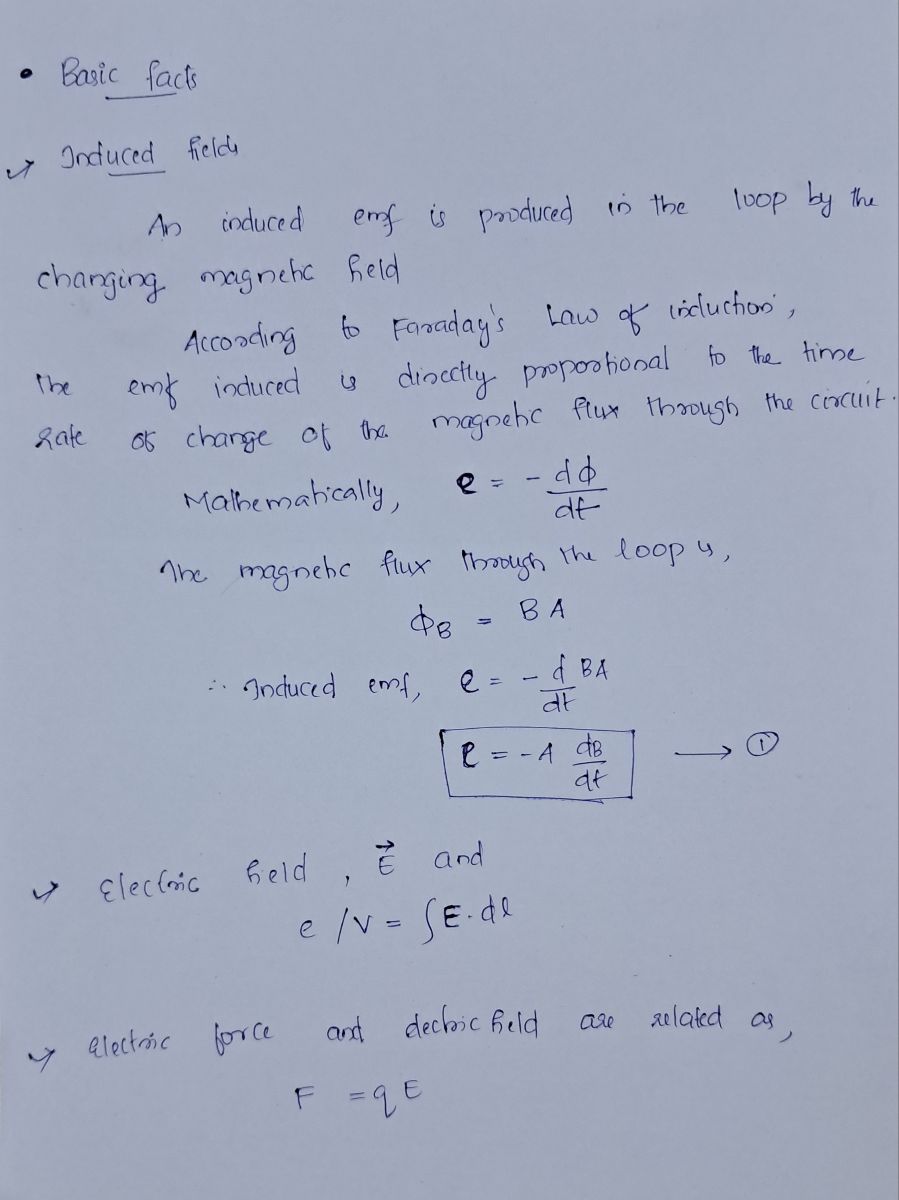 • Basic facts
✓ Induced fields
An induced emf is produced in the loop by the
changing magnetic field
According to Faraday's Law of induction,
The emf induced is directly proportional to the time
rate of change of the magnetic flux through the circuit.
Mathematically, e = - dϕ/dt
The magnetic flux through the loop is,
ϕB = BA
∴ Induced emf, e = - d/dt BA
e = -A dB/dt → ①
✓ Electric field, E⃗ and
e /V = ∫E.dl
✓ Electric force and electric field are related as,
F = qE